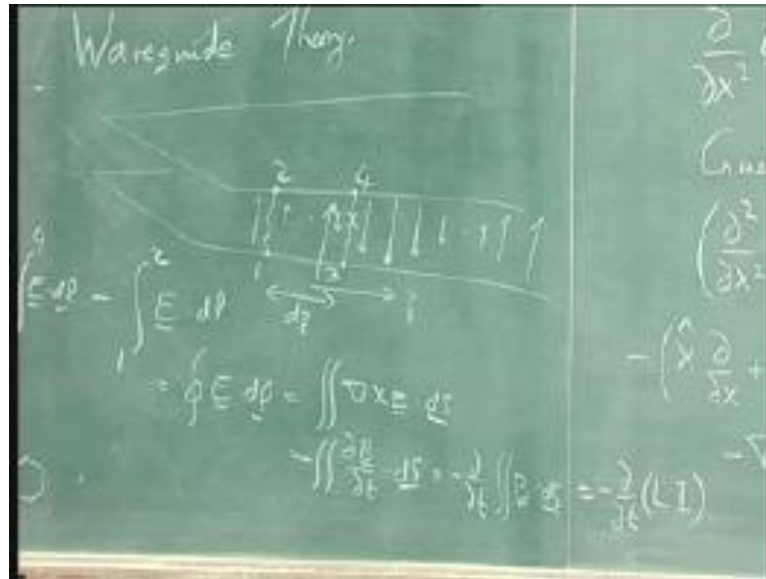 Waveguide Theory.
2 4
1 3
dz z
∫ E dl - ∫₁² E dl
= ∮ E dl = ∬ ∇ x E dS
- ∬ ∂B/∂t dS = - ∂/∂t ∬ B dS = - ∂/∂t (L I)
∂/∂x²
(∂²/∂x²
- (x̂ ∂/∂x +
- ∇